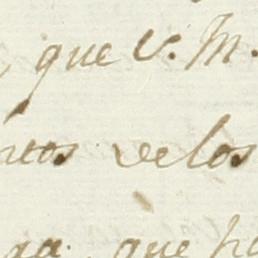 , que V. M.
ntos de los
ga. que